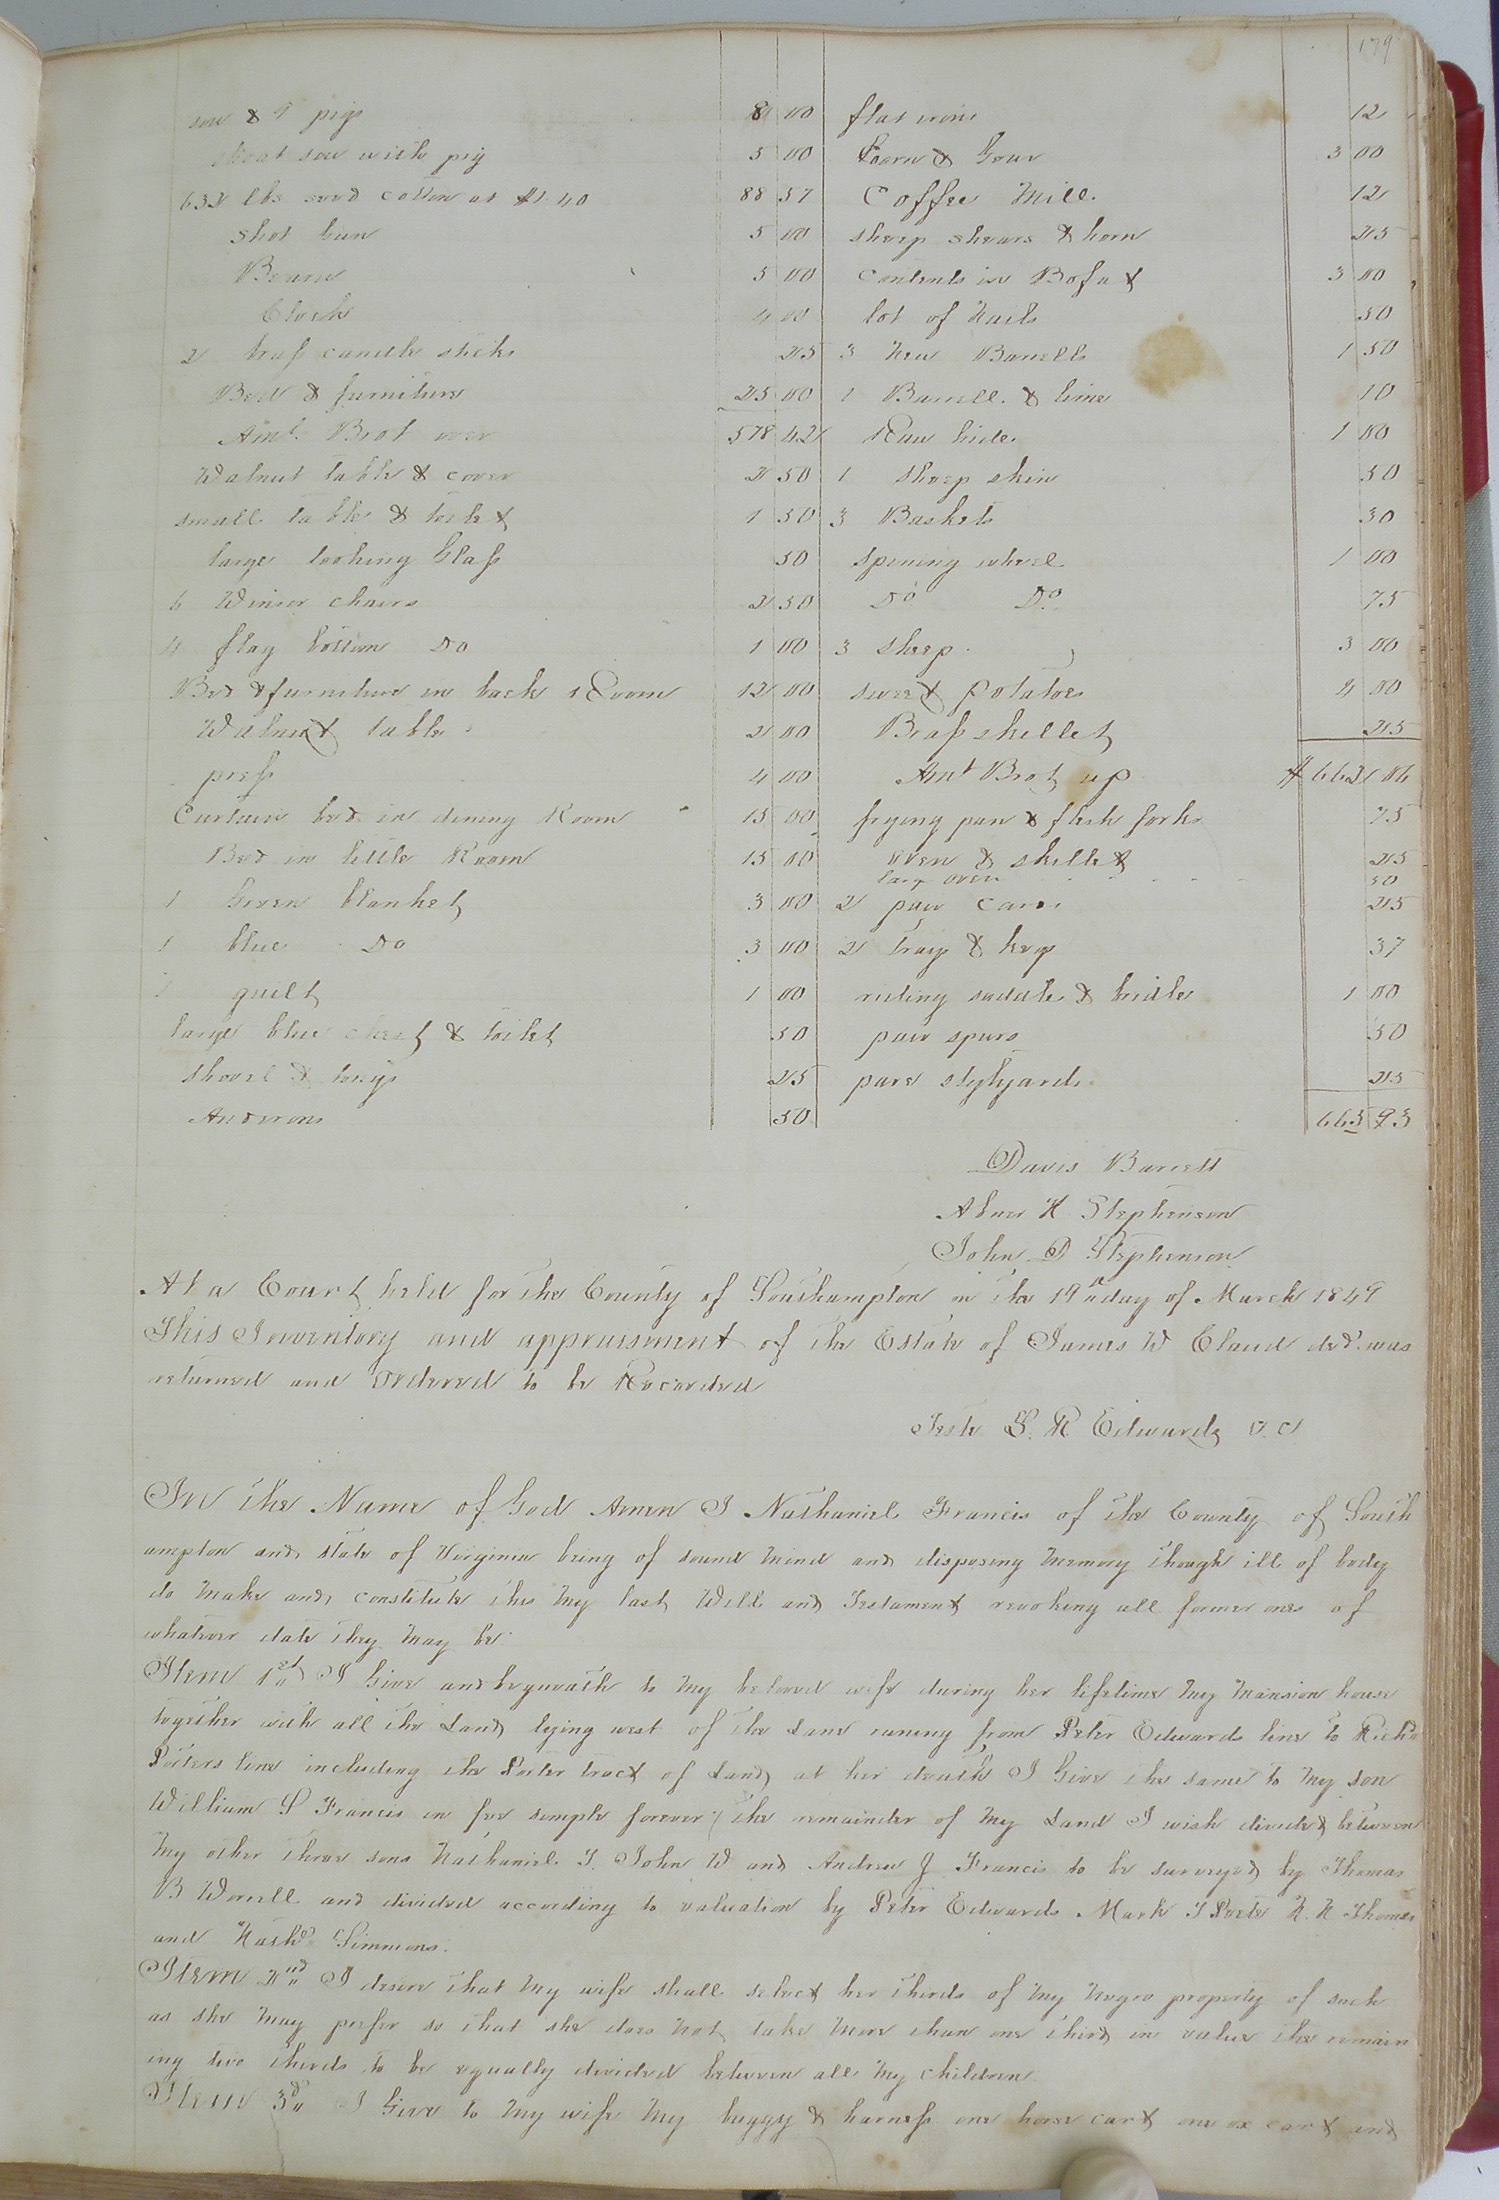 179
sow & 9 pigs 8 00
sow with pig 5 00
632 lbs seed cotton at $1.40 88 57
Shot Gun 5 00
Beaura 5 00
Clock 4 00
2 brass candle sticks 25
Bed & furniture 25 00
Amt. Brot over 578 42
Walnut table & cover 2 50
small table & toilet 1 50
large looking Glass 50
6 Winsor chairs 2 50
4 flag bottom Do 1 00
Bed & furniture in back Room 12 00
Walnut table 2 00
press 4 00
Curtain bed in dining Room 15 00
Bed in little Room 15 00
1 Green blanket 3 00
1 blue Do 3 00
1 quilt 1 00
large blue chest & toilet 50
shovel & tongs 25
Andirons 50
flat irons 12
3 00
Coffee Mill 12
sheep shears & horn 25
Contents in Bofat 3 00
lot of Nails 50
3 New Barrells 1 50
1 Barrell & lime 10
Raw hide 1 00
1 sheep skin 50
3 Baskets 30
spinning wheel 1 00
Do Do 75
3 sheep 3 00
sweet potatoes 4 00
Brass skillet 25
Amt Brot up $ 662 06
frying pan & flesh forks 75
oven & skillet 25
large oven 50
2 pair cards 25
2 trays & keep 37
riding saddle & bridle 1 00
pair spurs 50
pare stylyards 25
665 93
Davis Barrett
Abner H Stephenson
John D Stephenson
At a Court held for the County of Southampton on the 19th day of March 1849
This Inventory and appraisment of the Estate of James W Claud decd. was
returned and ordered to be Recorded
Teste L. R Edwards D. C.
In the Name of God Amen I Nathaniel Francis of the County of South
ampton and state of Virginia being of sound mind and disposing memory though ill of body
do make and constitute this my last Will and Testament revoking all former ones of
whatever date they may be.
Item 1st I Give and bequeath to my beloved wife during her lifetime my mansion house
together with all the Land lying west of the Lane runing from Peter Edwards line to Richd
Porters line including the Porter tract of Land, at her death I Give the same to my son
William S Francis in fee simple forever; the remainder of my Land I wish divided between
my other three sons Nathaniel T. John W and Andrew J Francis to be surveyed by Thomas
B Worrell and divided according to valuation by Peter Edwards Mark T Porter N. N Thomas
and Nathl Simmons.
Item 2nd I desire that my wife shall select her thirds of my Negro property of such
as she may prefer so that she does not take more than one third in value the remain
ing two thirds to be equally divided between all my children
Item 3d I Give to my wife my buggy & harness one horse cart one ox cart and